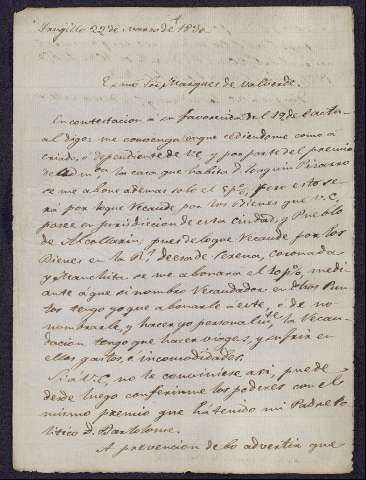 Trugillo 22 de marzo de 1830
Exmo Sor Marques de Valverde.
En contestacion á su favorecida del 12 de l actu-
al digo: me convengo en que cediendome como á
criado, ó dependiente de V.E, y por parte del premio
de la casa que habita D. Joaquin Pizarro
se me abone ademas solo el 8 p%, pero esto se-
rá por loque Recaude por los Bienes que V.E.
posee en jurisdicion de esta ciudad, y Pueblo
de Alcollarin; pues deloque Recaude por los
Bienes en la Rl. Deesa de Serena, coronada
y Manchita se me abonara el 10 p%, medi-
ante á que si nombro Recaudador en dhos Pun-
tos tengo yo que abonarle a este, ó de no
nombrarle, y hacer yo personalmte. la Recau-
dacion, tengo que hacer viages, y sufrir en
ellos gastos é incomodidades.
Si a V.E, no le conviniese asi, puede
desde luego conferirme los poderes con el
mismo premio que ha tenido mi Padre Po-
litico D. Bartolome.
A prevencion debo advertir que